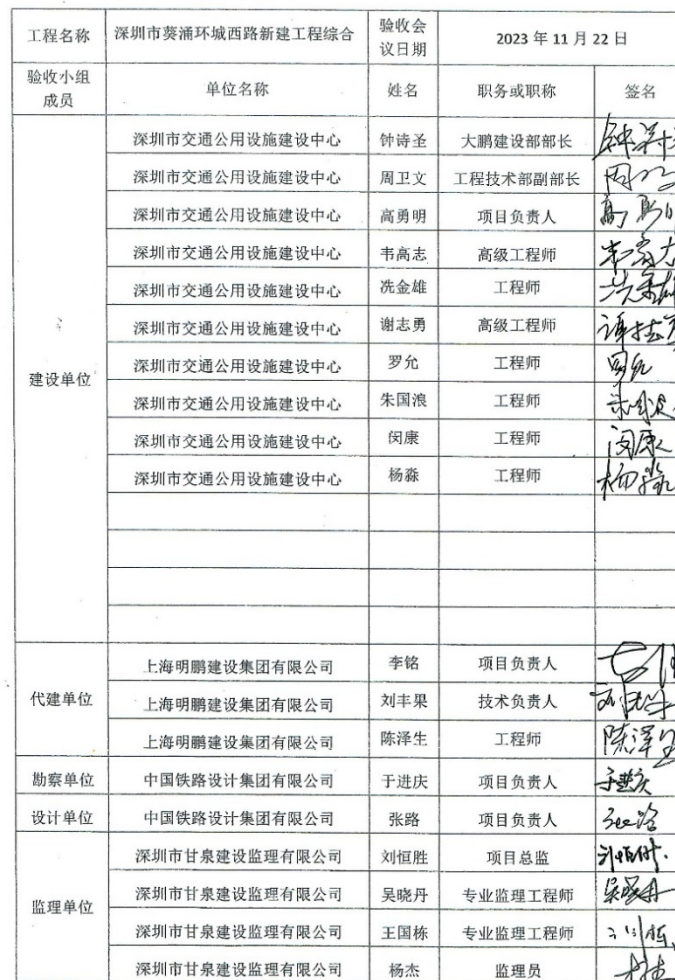 工程名称 深圳市葵涌环城西路新建工程综合 验收会议日期 2023 年 11 月 22 日
验收小组成员 单位名称 姓名 职务或职称 签名
建设单位
深圳市交通公用设施建设中心 钟诗圣 大鹏建设部部长
深圳市交通公用设施建设中心 周卫文 工程技术部副部长
深圳市交通公用设施建设中心 高勇明 项目负责人
深圳市交通公用设施建设中心 韦高志 高级工程师
深圳市交通公用设施建设中心 冼金雄 工程师
深圳市交通公用设施建设中心 谢志勇 高级工程师
深圳市交通公用设施建设中心 罗允 工程师 罗允
深圳市交通公用设施建设中心 朱国浪 工程师
深圳市交通公用设施建设中心 闵康 工程师 闵康
深圳市交通公用设施建设中心 杨淼 工程师 杨淼
代建单位
上海明鹏建设集团有限公司 李铭 项目负责人
上海明鹏建设集团有限公司 刘丰果 技术负责人
上海明鹏建设集团有限公司 陈泽生 工程师 陈泽生
勘察单位 中国铁路设计集团有限公司 于进庆 项目负责人 于进庆
设计单位 中国铁路设计集团有限公司 张路 项目负责人 张路
监理单位
深圳市甘泉建设监理有限公司 刘恒胜 项目总监 刘恒胜
深圳市甘泉建设监理有限公司 吴晓丹 专业监理工程师 吴晓丹
深圳市甘泉建设监理有限公司 王国栋 专业监理工程师
深圳市甘泉建设监理有限公司 杨杰 监理员